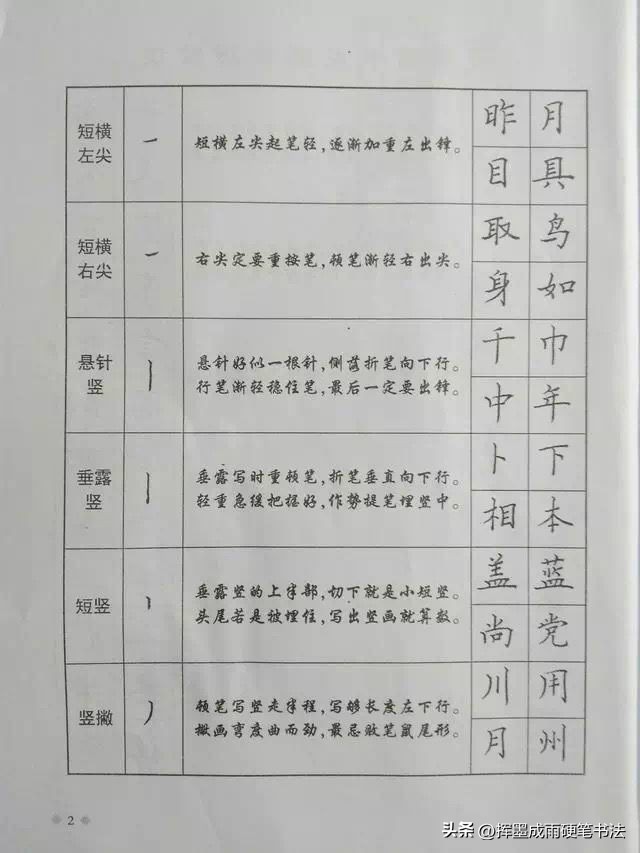 短横
左尖
一
短横左尖起笔轻，逐渐加重左出锋。
昨 月
目 具
短横
右尖
一
右尖定要重按笔，领笔渐轻右出尖。
取 鸟
身 如
悬针
竖
丨
悬针好似一根针，侧落折笔向下行。
行笔渐轻稳住笔，最后一定要出锋。
千 巾
中 年
垂露
竖
丨
垂露写时重领笔，折笔垂直向下行。
轻重急缓把握好，作势提笔埋竖中。
卜 下
相 本
短竖
垂露竖的上半部，切下就是小短竖。
头尾若是被埋住，写出竖画就算数。
盖 蓝
尚 党
竖撇
丿
领笔写竖走半程，写够长度左下行。
撇画弯度曲而劲，最忌败笔鼠尾形。
川 用
月 州
2
头条 @挥墨成雨硬笔书法